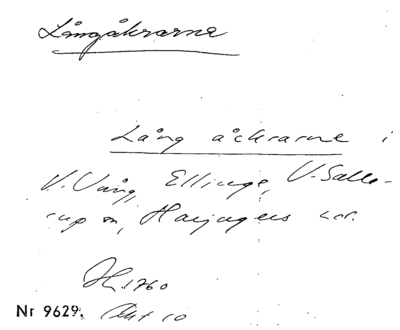 Långåkrarne
Lång åckrarne i
V. Vång, Ellinge, V. Salle-
rup sn, Harjagers hd.
1760
Nr 9629. Akt 10